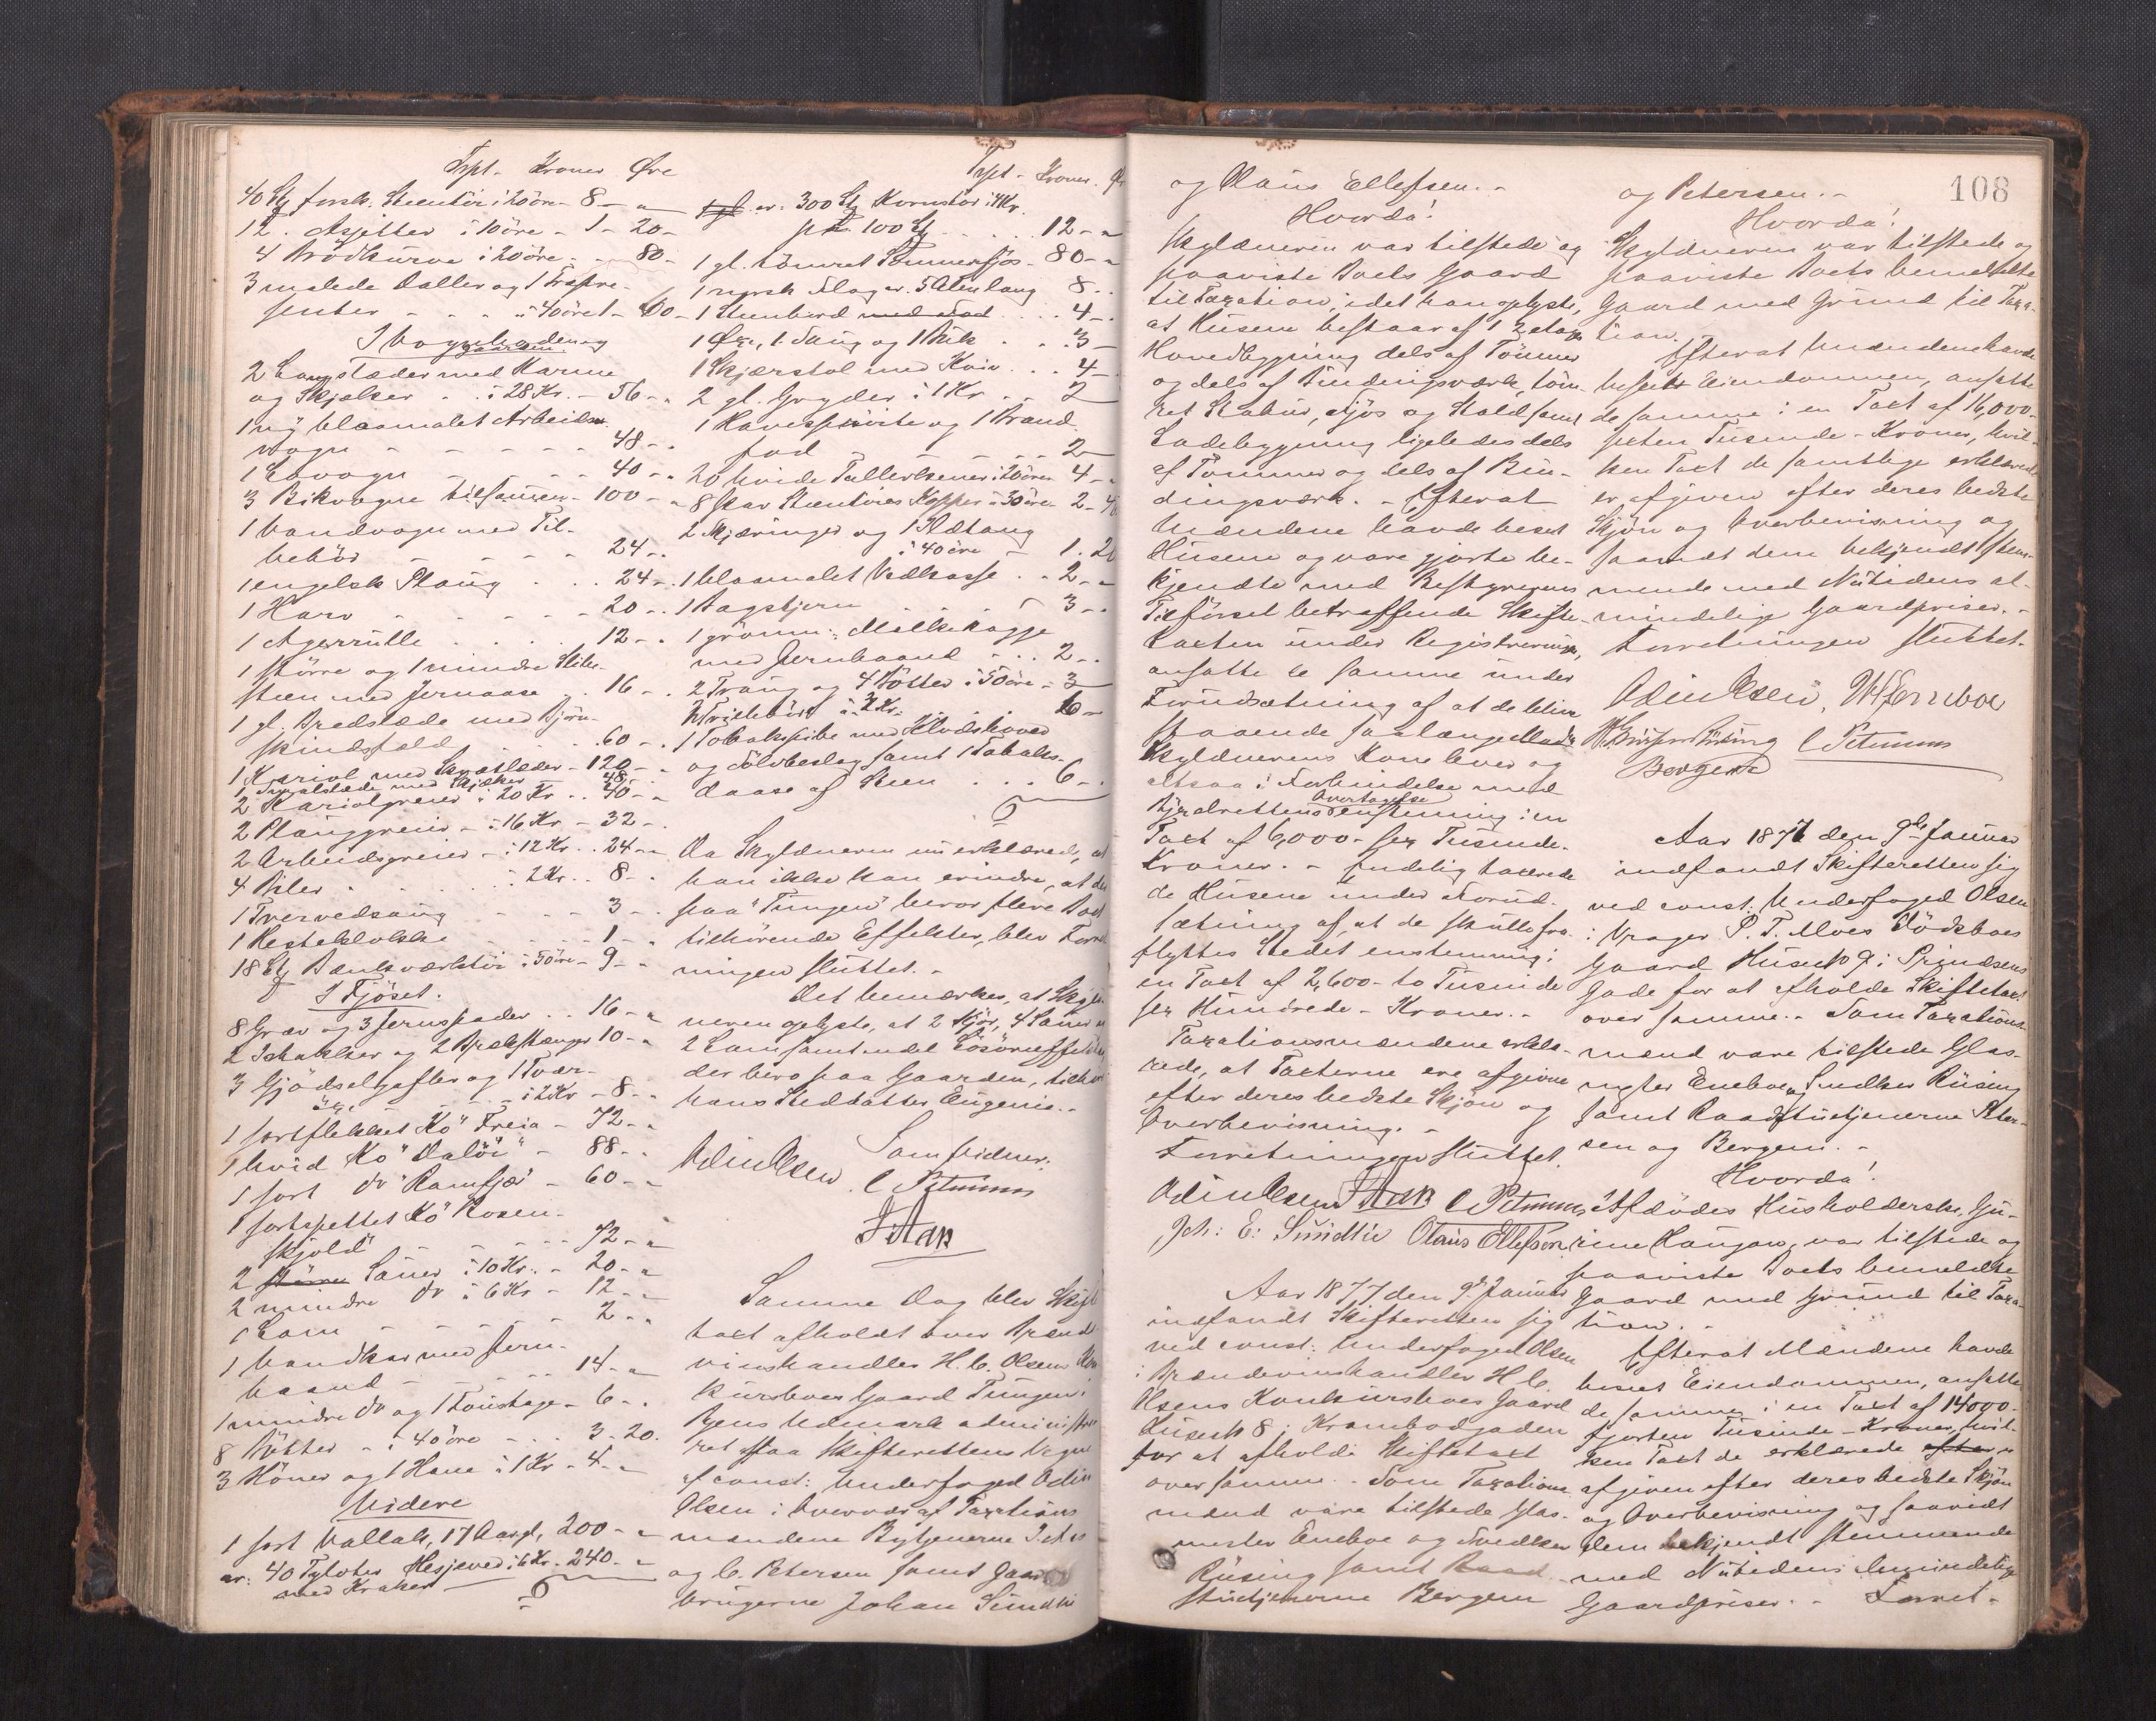 Trpt. Kroner Øre
40 Stk forsk. Stentöi i 20 öre - 8 - "
12. Asjetter i 10 öre - 1 - 20 -
4 Brödkurve i 20 öre - - 80 -
3 malede Baller og 1 Træpre-
senter - - - i 40 öre 1 - 60 -
I Vognboden og
gaarden
2 Langslæder med Karme
og Skjelker - i 28 Kr. - 56 - "
1 ny blaamalet Arbeids-
vogn - - - - 48 - "
1 Lovogn - - - - 40 - "
3 Bikvogne tilsammen - 100 - "
1 Vandvogn med Til-
behör - - - - - 24 - "
1 engelsk Ploug . . . 24 - "
1 Harv - - - - - 20 - "
1 Agerrulle . . . . 12 - "
1 större og 1 mindre Slibe-
steen med Jernaase . 16 - "
1 gl. Bredslæde med Björn-
skindsfeld . . . . 60 - "
1 Karjol med Skvætlæder - 120 - "
1 Spidslæde med Skjelker 48 -
2 Karjolgreier i 20 Kr . . 40 - "
2 Plouggreier - i 16 Kr - 32 -
2 Arbeidsgreier - i 12 Kr . . 24 - "
4 Biler . . . . i 2 Kr. . 8 - "
1 Tvervedsaug - - - 3 - "
1 Hesteklokke - - - 1 - "
18 Stk Bænkværktöi i 50 öre - 9 - "
I Fjöset.
8 Grev og 3 Jernspader . . 16 - "
2 Schakker og 2 Brækstænger 10 - "
3 Gjödselgafler og 1 Tvær-
öxe - - - - i 2 Kr - 8 - "
1 sortflekket Ko "Freia - 72 - "
1 hvid Ko "Dalöi" - 88 - "
1 sort do "Ramfjei - 60 - "
1 sortspettet Ko "Rosen-
skjold" - - - - - 72 - "
2 större Sauer i 10 Kr. - 20 - "
2 mindre do i 6 Kr - 12 - "
1 Lam - - - - - 2 - "
1 Vandkar med Jern-
baand - - - - 14 - "
1 mindre do og 1 Foustage - 6 - "
8 Bötter - i 40 öre - - 3 - 20.
3 Höner og 1 Hane i 1 Kr - 4 - "
Videre
1 sort Vallak, 17 Aar gl, 200 - "
ar: 40 Tylvter Hesjeved i 6 Kr. 240 - "
med Kraker
Trpt - Kroner. Ør
ar. 300 Stk Kornstör i 4 Kr.
pr. 100 Stk . . . . 12 - "
1 gl. tömret Sommerfjös - 80 - "
1 norsk Flag ar. 5 Alen lang 8 - "
1 Steenbord med Fod . . . 4 - "
1 Öxe, 1 Saug og 1 Bile . . . 3 -
1 Skjærstol med Kniv . . . 4 -
2 gl. Gryder i 1 Kr . . 2
1 Havesprøite og 1 Brand-
fad - - - - - 2
20 hvide Tallerkener i 20 öre 4 - "
8 Par Stentöies Kopper i 30 öre - 2 - 40
2 Skjæringer og 1 Ildtang
i 40 öre - 1. 20
1 blaamalet Vedkasse . - 2 - "
1 Bagstjern . . . . 3 - "
1 grönm: Melkekagge
med Jernbaand . . . 2 - "
2 Traug og 4 Bötter i 50 öre - 3
2 Trillebör i 3 Kr. . . . 6 -
1 Tobakspibe med Hoved
og Sölvbeslag samt 1 Tobaks-
daase af Steen . . . 6 - "
Da Skyldneren nu erklærede, at
han ikke kan erindre, at der
paa "Tungen" beror flere Boet
tilhörende Effekter, blev Forret-
ningen sluttet. -
Det bemærkes, at Skyld-
neren oplyste, at 2 Kjör, 4 Sauer og
2 Lam samt endel Lösöreeffekter,
der bero paa Gaarden, tilhöre
hans Steddatter Eugenie. -
Som Vidner:
Odin Olsen C Petersen
J. Aas
Samme Dag blev Skifte-
taxt afholdt over Brænde-
vinshandler H. C. Olsens Kon-
kursboes Gaard Tungen i
Byens Udmark administre-
ret paa Skifterettens Vegne
af const: Underfoged Odin
Olsen i Overvær af Taxations
mændene Bytjenerne J. Aas
og C. Petersen samt Gaard
brugerne Johan Sundli
108
og Olaus Ellefsen. -
Hvorda!
Skyldneren var tilstede og
paaviste Boets Gaard
til Taxation, idet han oplyste,
at Husene bestaar af 1 2 etages
Hovedbygning dels af Tömmer
og dels af Bindingsværk, töm-
ret Stabur, Fjös og Stald samt
Ladebygning ligeledes dels
af Tömmer og dels af Bin-
dingsværk. - Efterat
Mændene havde beset
Husene og vare gjorte be-
kjendte med Bestyrerens
Tilförsel betræffende Skifte-
taxten under Registreringen,
ansatte de samme under
Forudsætning af at de blive
staaende saalænge
Skyldnerens Kone lever og
altsaa i Forbindelse med
Bygselrettens Overtagelse enstemmig i en
Taxt af 6,000 - sex Tusinde -
Kroner. - Endelig taxerede
de Husene under Forud-
sætning af, at de skulle fra-
flyttes Stedet enstemmig i
en Taxt af 2,600 - to Tusinde
sex Hundrede - Kroner. -
Taxationsmændene erklæ-
rede, at Taxterne ere afgivne
efter deres bedste Skjön og
Overbevisning. -
Forretningen sluttet.
Odin Olsen J Aas C Petersen
Joh: E: Sundlie Olaus Ellefsen
Aar 1877 den 9de Januar
indfandt Skifteretten sig
ved const: Underfoged Olsen
i Brændevinshandler H. C.
Olsens Konkursboes Gaard
Huus No 8 i Krambodgaden
for at afholde Skiftetaxt
over samme. - Som Taxations
mænd vare tilstede Glas-
mester Eneboe og Snedker
Rüsing samt Raad-
stutjenerne Bergem
og Petersen. -
Hvorda!
Skyldneren var tilstede og
paaviste Boets bemeldte
Gaard med Grund til Taxa-
tion.
Efterat Mændene havde
beseet Eiendommen, ansatte
de samme i en Taxt af 16,000 -
sexten Tusinde - Kroner, hvil-
ken Taxt de samtlige erklærede
er afgiven efter deres bedste
Skjön og Overbevisning og
saavidt dem bekjendt stem-
mende med Nutidens al-
mindelige Gaardpriser. -
Forretningen sluttet.
Odin Olsen, Eneboe
Rüsing C Petersen
Bergem
Aar 1877 den 9de Januar
indfandt Skifteretten sig
ved const: Underfoged Olsen
i Vrager P. T. Moes Dödsboes
Gaard Huus No 9 i Prindsens
Gade for at afholde Skiftetaxt
over samme. - Som Taxations-
mænd vare tilstede Glas-
mester Eneboe, Snedker Rüsing
samt Raadstutjenerne Peter-
sen og Bergem. -
Hvorda!
Afdödes Husholderske, Gu-
rine Haugan, var tilstede og
paaviste Boets bemeldte
Gaard med Grund til Taxa-
tion. -
Efterat Mændene havde
beseet Eiendommen, ansatte
de samme i en Taxt af 14000 -
fjorten Tusinde - Kroner, hvil-
ken Taxt de erklærede efter er
afgiven efter deres bedste Skjön
og Overbevisning og saavidt
dem bekjendt stemmende
med Nutidens almindelige
Gaardpriser. - Forret-